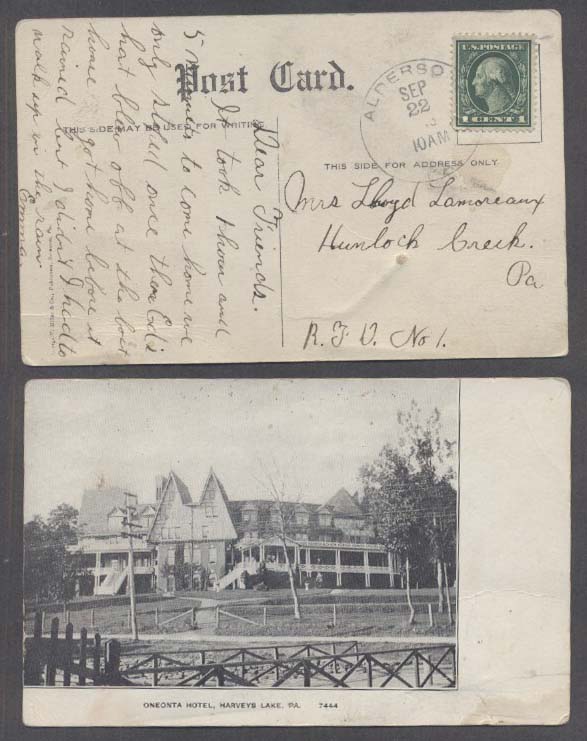 Post Card.
THIS SIDE MAY BE USED FOR WRITING
THIS SIDE FOR ADDRESS ONLY
U.S. POSTAGE
1 CENT 1
ALDERSO
SEP
22
10 AM
Mrs Lloyd Lamoreaux
Hunlock Creek.
Pa
R.F.D. No 1.
Dear Friends.
It took 1 hour and
5 minuets to come home we
only stoped once then Ed's
hat blew off at the
home. got home before it
rained but I didn't I had to
walk up in the rain
Emma.
ONEONTA HOTEL, HARVEYS LAKE, PA. 7444